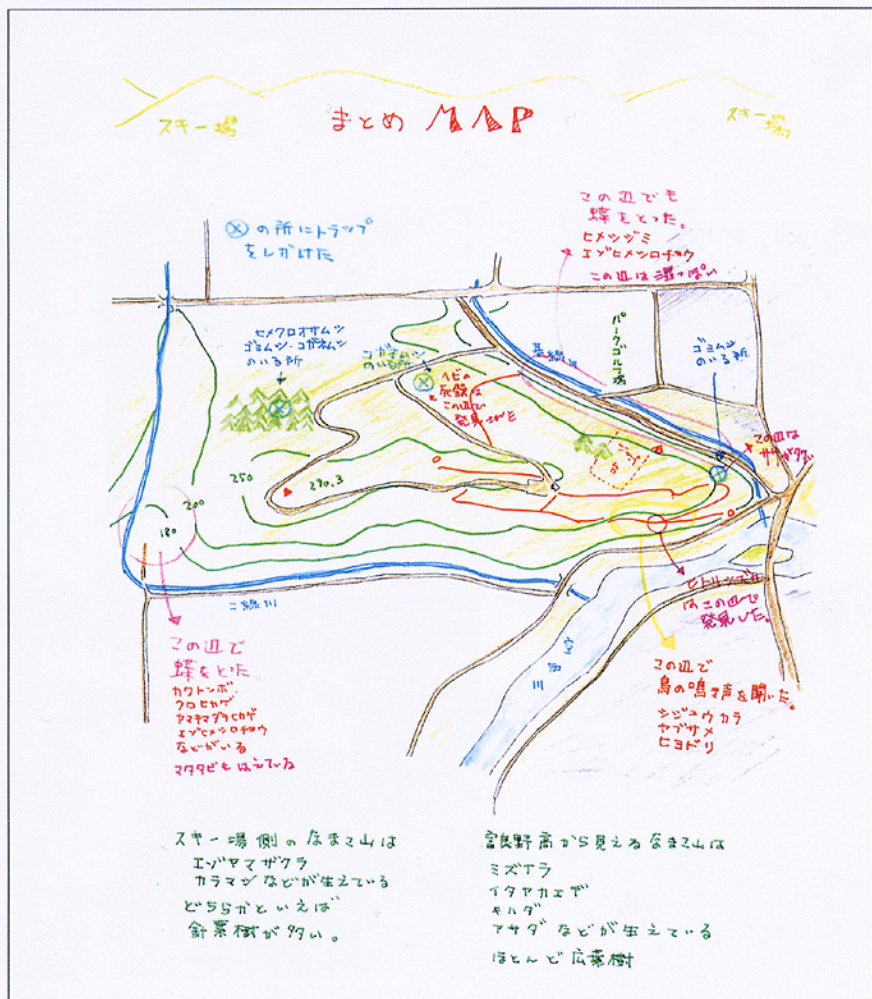 スキー場
まとめ MAP
スキー場
⊗の所にトラップ
をしかけた
この辺でも
蝶をとった。
ヒメシジミ
エゾヒメシロチョウ
この辺は湿っぽい
ヒメクロオサムシ
ゴミムシ・コガネムシ
のいる所
コガネムシ
のいる所
ヘビの
死骸は
この辺で
発見された
基線川
パークゴルフ場
ゴミムシ
のいる所
この辺は
ササが多い
290.3
250
200
180
二線川
空知川
ヒトリシズカ
はこの辺で
発見した。
この辺で
蝶をとった
カワトンボ
クロヒカゲ
ヤマキマダラヒカゲ
エゾヒメシロチョウ
などがいる
マタタビもはえている
この辺で
鳥の鳴き声を聞いた。
シジュウカラ
ヤブサメ
ヒヨドリ
スキー場側のなまこ山は
エゾヤマザクラ
カラマツなどが生えている
どちらかといえば
針葉樹が多い。
富良野高から見えるなまこ山は
ミズナラ
イタヤカエデ
キハダ
アサダなどが生えている
ほとんど広葉樹